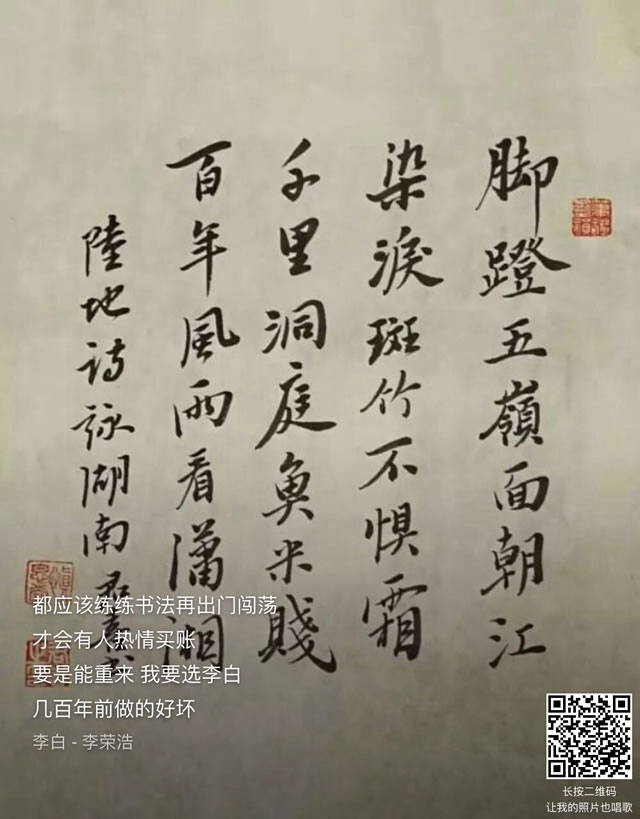 脚蹬五嶺面朝江
染淚斑竹不惧霜
千里洞庭魚米賤
百年風雨看瀟湘
陸地詩詠湖南
都应该练练书法再出门闯荡
才会有人热情买账
要是能重来 我要选李白
几百年前做的好坏
李白 - 李荣浩
长按二维码
让我的照片也唱歌